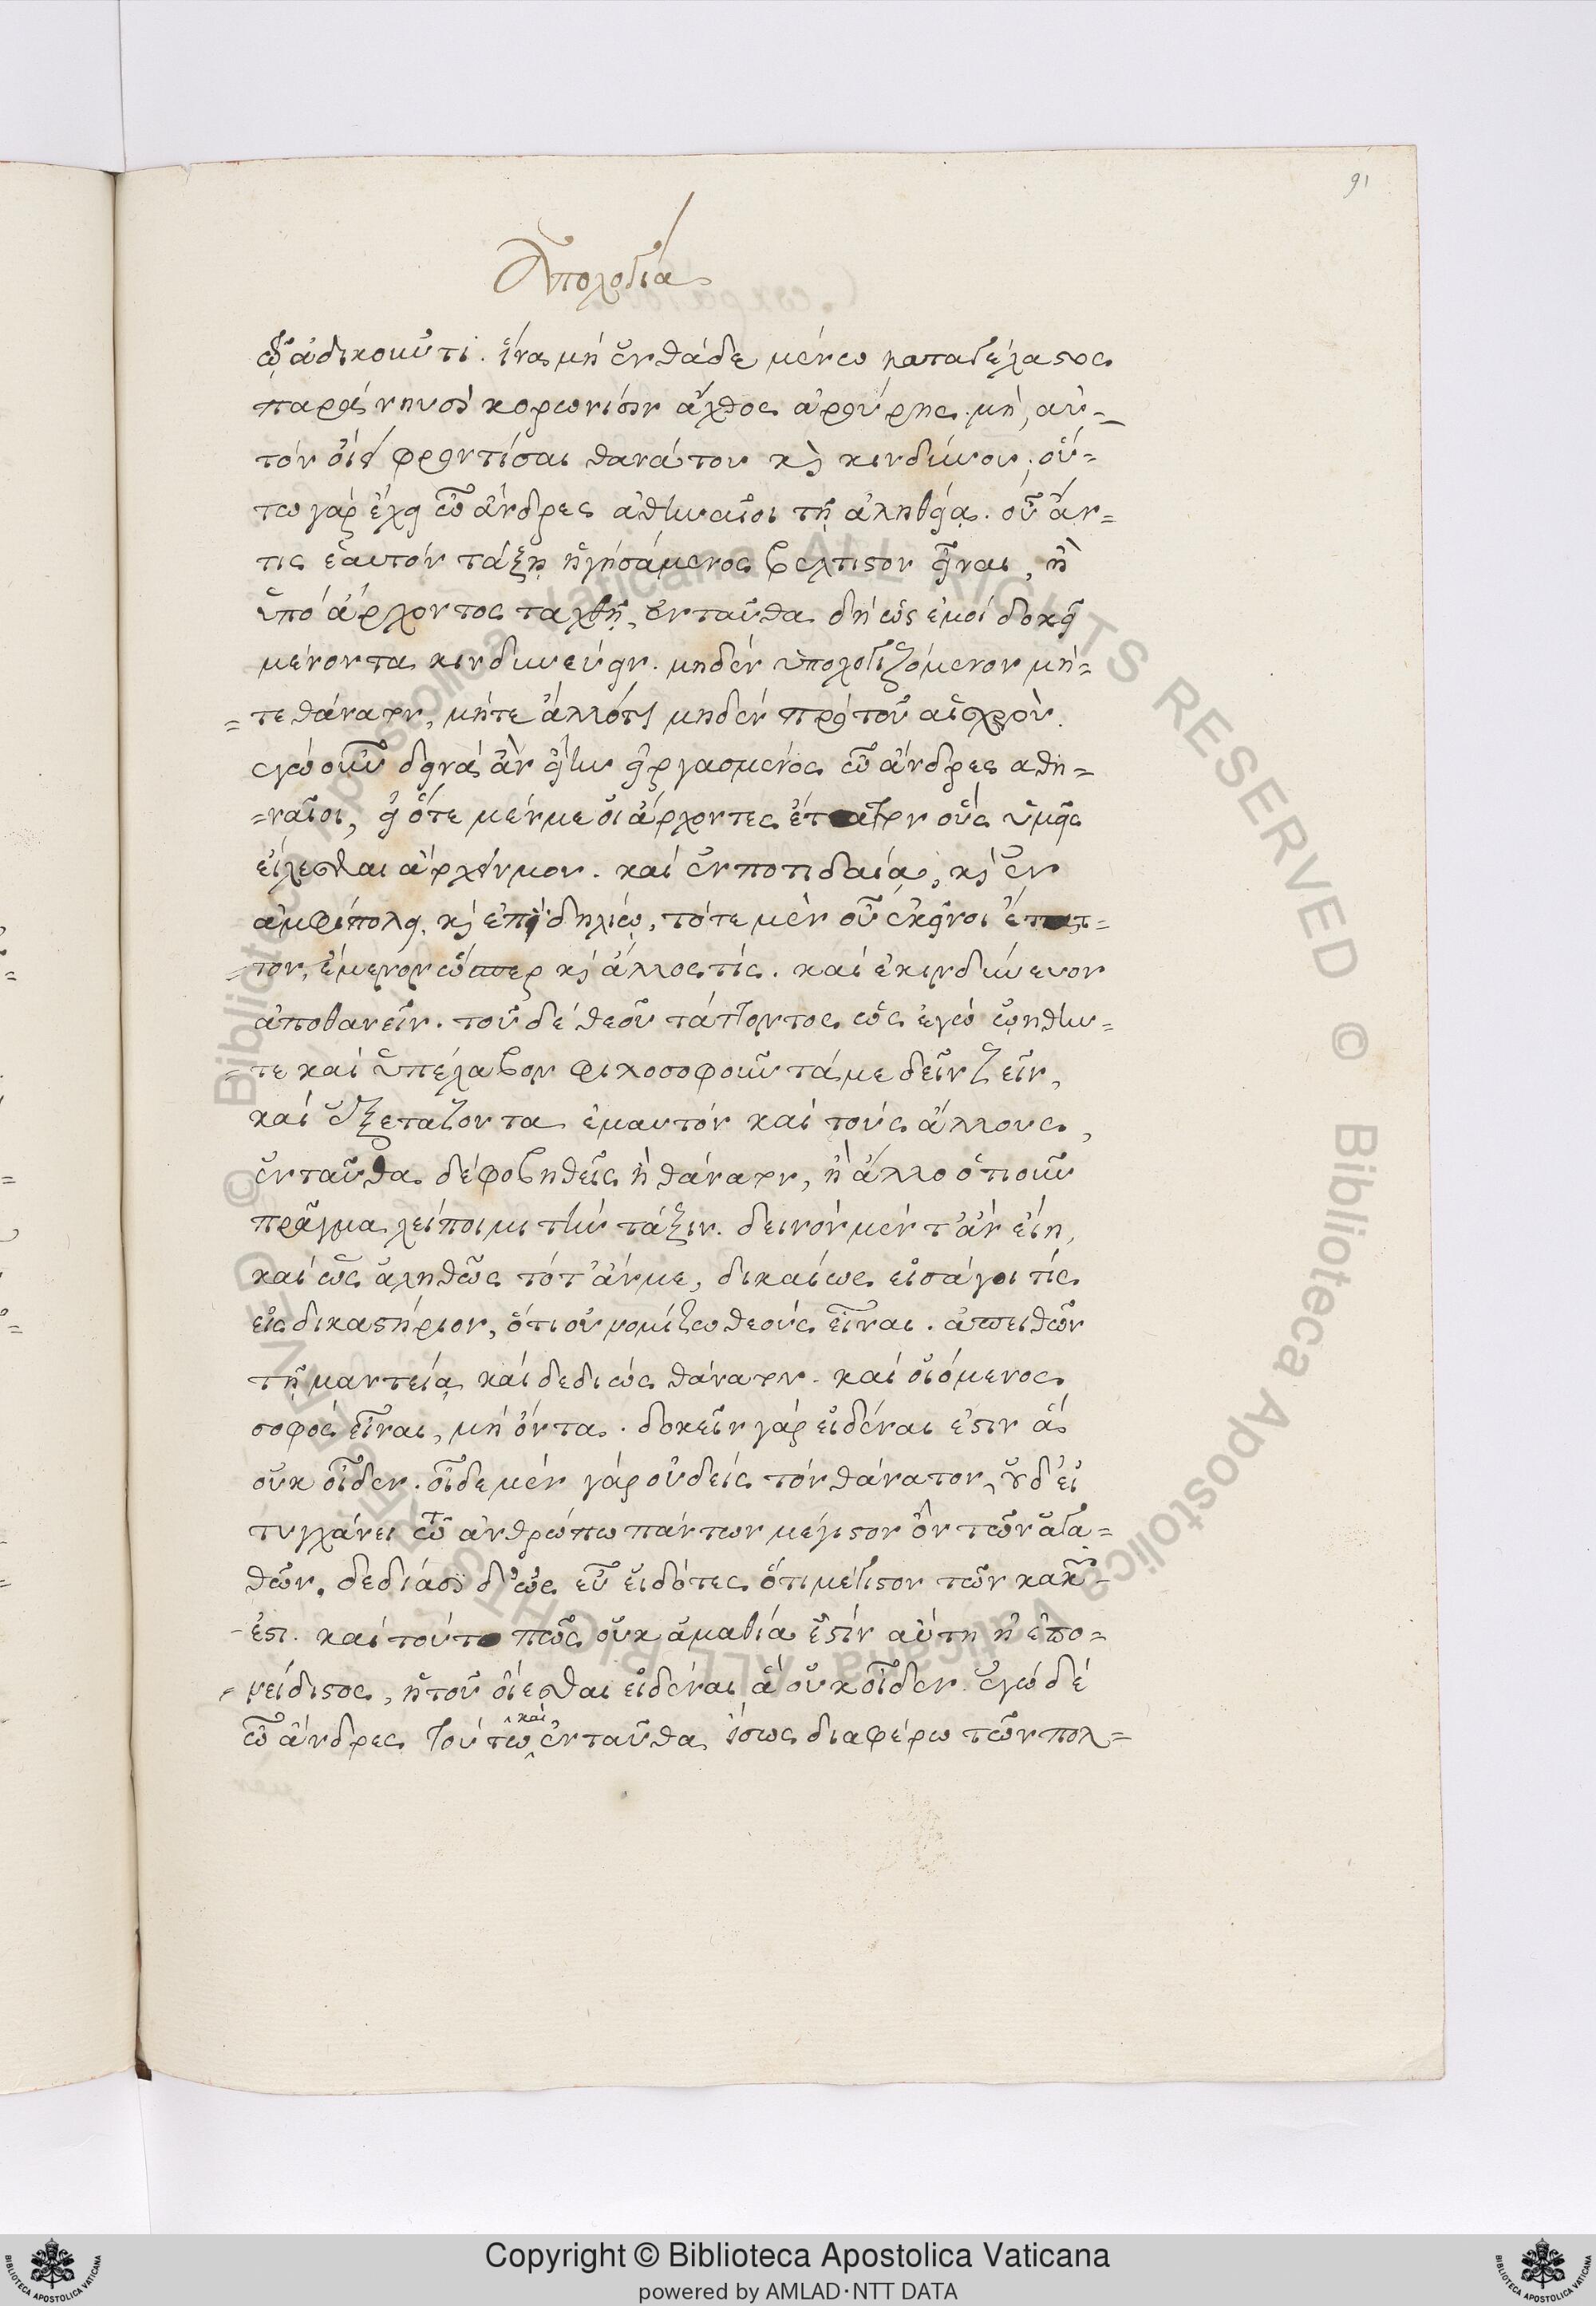 91
Ἀπολογία
τῷ ἀδικοῦντι. ἵνα μὴ ἐνθάδε μένω καταγέλαστος
παρὰ νηυσὶ κορωνίσιν ἄχθος ἀρούρης. μὴ, αὐ-
τὸν οἴει φροντίσαι θανάτου καὶ κινδύνου; οὕ-
τω γὰρ ἔχει ὦ ἄνδρες ἀθηναῖοι τῇ ἀληθείᾳ. οὗ ἄν
τις ἑαυτὸν τάξῃ ἡγησάμενος βέλτιστον εἶναι, ἢ
ὑπὸ ἄρχοντος ταχθῇ, ἐνταῦθα δὴ ὡς ἐμοὶ δοκεῖ
μένοντα κινδυνεύειν. μηδὲν ὑπολογιζόμενον μή=
=τε θάνατον, μήτε ἄλλό τι μηδὲν πρὸ τοῦ αἰσχροῦ.
ἐγὼ οὖν δεινὰ ἂν εἴην εἰργασμένος ὦ ἄνδρες ἀθη=
=ναῖοι, εἰ ὅτε μέν με οἱ ἄρχοντες ἔταττον οὓς ὑμεῖς
εἵλεσθαι ἄρχειν μου. καὶ ἐν ποτιδαίᾳ, καὶ ἐν
ἀμφιπόλει, καὶ ἐπὶ δηλίῳ, τότε μὲν οὗ ἐκεῖνοι ἔτατ=
=τον, ἔμενον ὥσπερ καὶ ἄλλος τίς. καὶ ἐκινδύνευον
ἀποθανεῖν. τοῦ δὲ θεοῦ τάττοντος ὡς ἐγὼ ᾠήθην=
=τε καὶ ὑπέλαβον φιλοσοφοῦντά με δεῖν ζεῖν,
καὶ ἐξετάζοντα ἐμαυτὸν καὶ τοὺς ἄλλους,
ἐνταῦθα δὲ φοβηθεὶς ἢ θάνατον, ἢ ἄλλο ὁτιοῦν
πρᾶγμα λείποιμι τὴν τάξιν. δεινὸν μέν τ᾽ ἂν εἴη,
καὶ ὡς ἀληθῶς τότ᾽ ἄν με, δικαίως εἰσάγοι τίς
εἰς δικαστήριον, ὅτι οὐ νομίζω θεοὺς εἶναι. ἀπειθῶν
τῇ μαντείᾳ καὶ δεδιὼς θάνατον. καὶ οἰόμενος
σοφὸς εἶναι, μὴ ὄντα. δοκεῖν γὰρ εἰδέναι ἐστιν ἃ
οὐκ οἶδεν. οἶδε μὲν γὰρ οὐδεὶς τὸν θάνατον, οὐδ᾽ εἰ
τυγχάνει τῷ ἀνθρώπω πάντων μέγιστον ὂν τῶν ἀγα=
θῶν, δεδιάσι δ᾽ ὡς εὖ εἰδότες ὅτι μέγιστον τῶν κακῶν
ἐστι. καὶ τοῦτο πῶς οὐκ ἀμαθία ἐστὶν αὕτη ἡ ἐπο=
νείδιστος, ἡ τοῦ οἴεσθαι εἰδέναι ἃ οὐκ οἶδεν. ἐγὼ δὲ
ὦ ἄνδρες τούτω καὶ ἐνταῦθα ἴσως διαφέρω τῶν πολ=
Copyright © Biblioteca Apostolica Vaticana
powered by AMLAD·NTT DATA